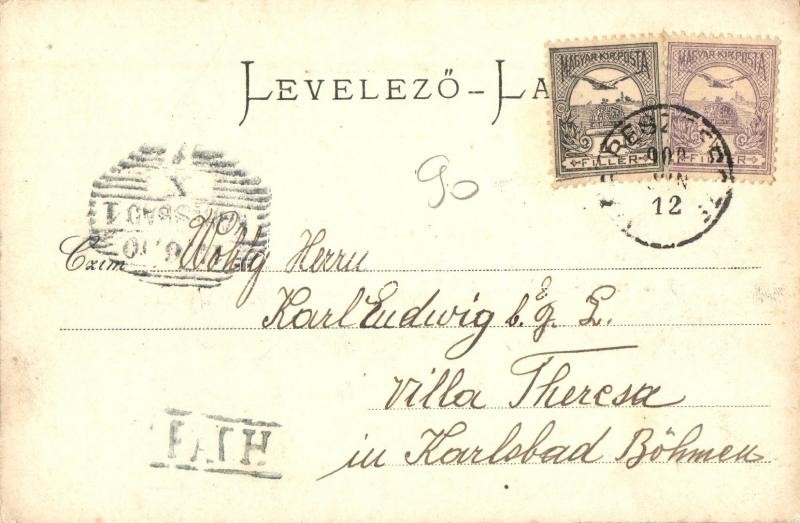 LEVELEZŐ-LA
MAGYAR KIR. POSTA
FILLÉR
MAGYAR KIR. POSTA
FILLÉR
900
JUN
12
90
X
Czim
Wohlg Herrn
Karl Ludwig b. E. g. L.
Villa Theresa
in Karlsbad Böhmen